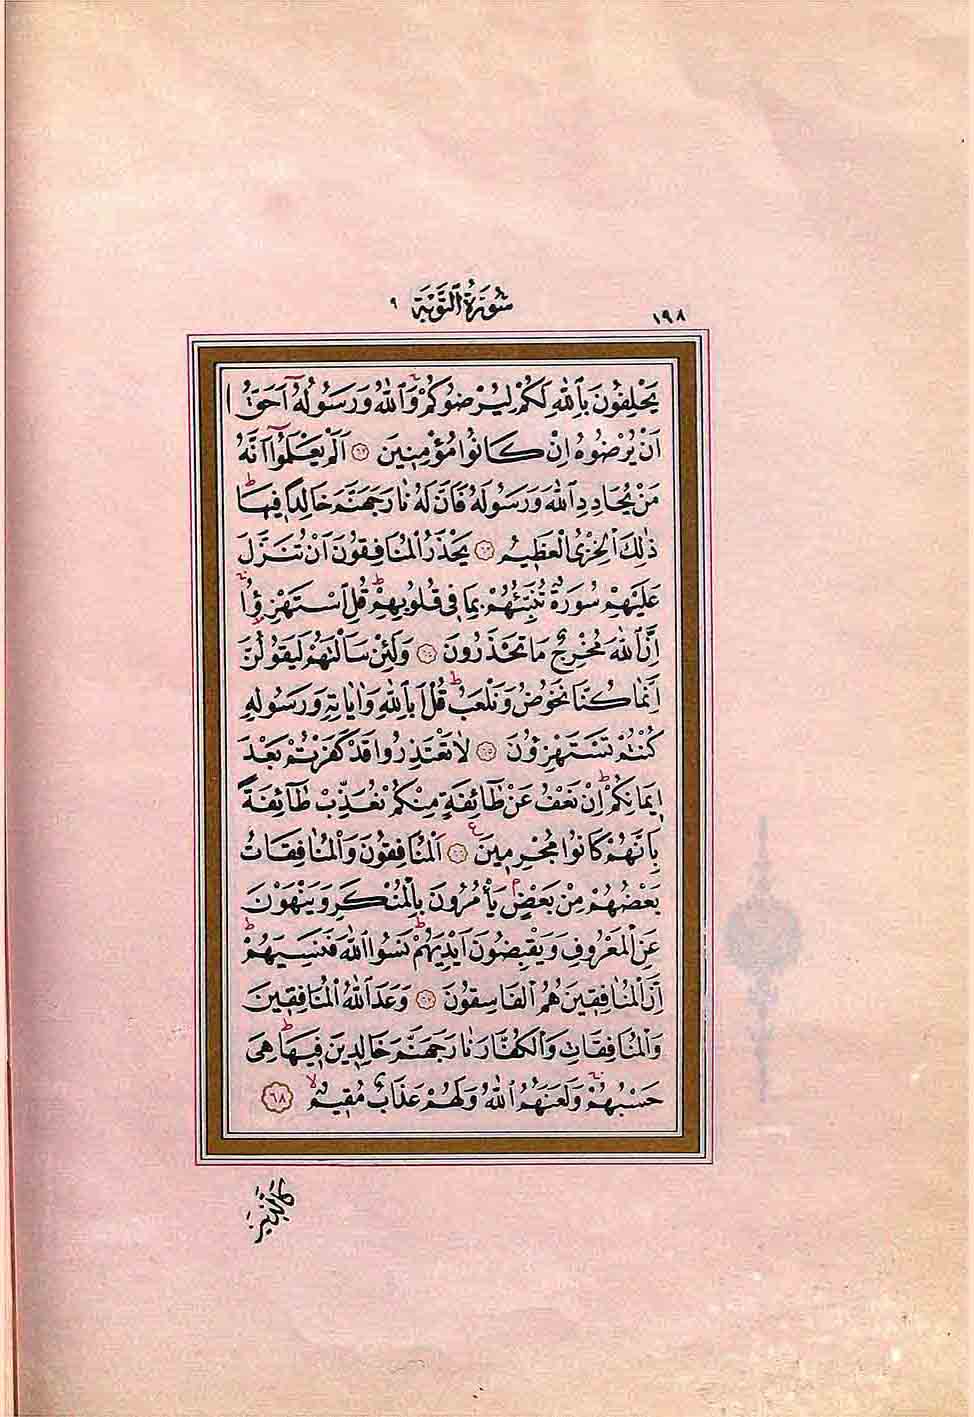 ١٩٨
سُورَةُ التَّوْبَةِ ٩
يَحْلِفُونَ بِاللّٰهِ لَكُمْ لِيُرْضُوكُمْ وَاللّٰهُ وَرَسُولُهُ اَحَقُّ
اَنْ يُرْضُوهُ اِنْ كَانُوا مُؤْمِنِينَ ٦٢ اَلَمْ يَعْلَمُوا اَنَّهُ
مَنْ يُحَادِدِ اللّٰهَ وَرَسُولَهُ فَاَنَّ لَهُ نَارَ جَهَنَّمَ خَالِدًا فِيهَا
ذٰلِكَ الْخِزْىُ الْعَظِيمُ ٦٣ يَحْذَرُ الْمُنَافِقُونَ اَنْ تُنَزَّلَ
عَلَيْهِمْ سُورَةٌ تُنَبِّئُهُمْ بِمَا فِى قُلُوبِهِمْ قُلِ اسْتَهْزِؤُا
اِنَّ اللّٰهَ مُخْرِجٌ مَا تَحْذَرُونَ ٦٤ وَلَئِنْ سَاَلْتَهُمْ لَيَقُولُنَّ
اِنَّمَا كُنَّا نَخُوضُ وَنَلْعَبُ قُلْ اَبِاللّٰهِ وَاٰيَاتِهِ وَرَسُولِهِ
كُنْتُمْ تَسْتَهْزِؤُنَ ٦٥ لَا تَعْتَذِرُوا قَدْ كَفَرْتُمْ بَعْدَ
اِيمَانِكُمْ اِنْ نَعْفُ عَنْ طَائِفَةٍ مِنْكُمْ نُعَذِّبْ طَائِفَةً
بِاَنَّهُمْ كَانُوا مُجْرِمِينَ ٦٦ اَلْمُنَافِقُونَ وَالْمُنَافِقَاتُ
بَعْضُهُمْ مِنْ بَعْضٍ يَأْمُرُونَ بِالْمُنْكَرِ وَيَنْهَوْنَ
عَنِ الْمَعْرُوفِ وَيَقْبِضُونَ اَيْدِيَهُمْ نَسُوا اللّٰهَ فَنَسِيَهُمْ
اِنَّ الْمُنَافِقِينَ هُمُ الْفَاسِقُونَ ٦٧ وَعَدَ اللّٰهُ الْمُنَافِقِينَ
وَالْمُنَافِقَاتِ وَالْكُفَّارَ نَارَ جَهَنَّمَ خَالِدِينَ فِيهَا هِىَ
حَسْبُهُمْ وَلَعَنَهُمُ اللّٰهُ وَلَهُمْ عَذَابٌ مُقِيمٌ ٦٨
كَالَّذِينَ